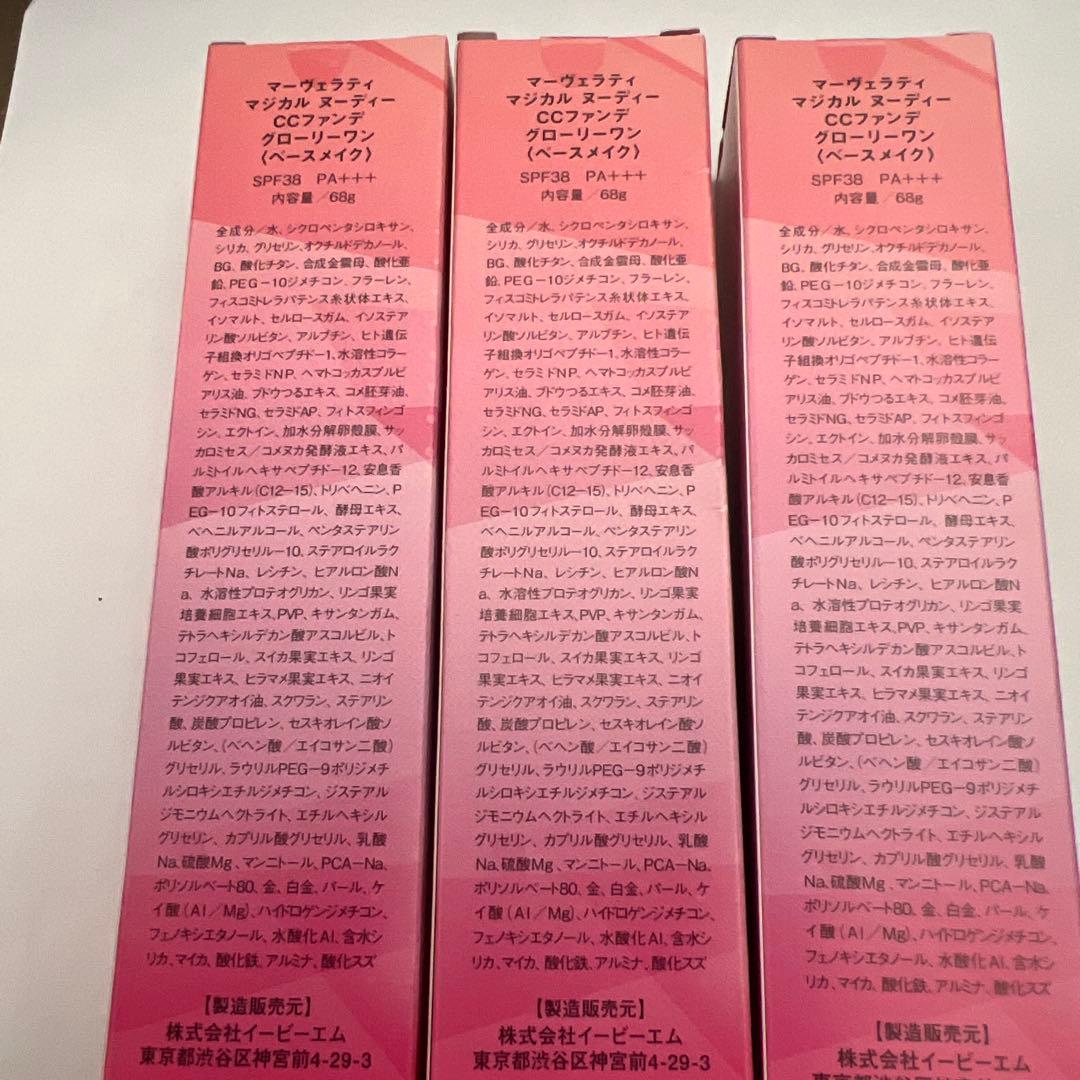 マーヴェラティ
マジカル ヌーディー
CCファンデ
グローリーワン
〈ベースメイク〉
SPF38 PA+++
内容量/68g
全成分/水、シクロペンタシロキサン、
シリカ、グリセリン、オクチルドデカノール、
BG、酸化チタン、合成金雲母、酸化亜
鉛、PEG-10ジメチコン、フラーレン、
フィスコミトレラパテンス糸状体エキス、
イソマルト、セルロースガム、イソステア
リン酸ソルビタン、アルブチン、ヒト遺伝
子組換オリゴペプチド-1、水溶性コラー
ゲン、セラミドNP、ヘマトコッカスプルビ
アリス油、ブドウつるエキス、コメ胚芽油、
セラミドNG、セラミドAP、フィトスフィンゴ
シン、エクトイン、加水分解卵殻膜、サッ
カロミセス/コメヌカ発酵液エキス、パ
ルミトイルヘキサペプチド-12、安息香
酸アルキル(C12-15)、トリベヘニン、P
EG-10フィトステロール、酵母エキス、
ベヘニルアルコール、ペンタステアリン
酸ポリグリセリル-10、ステアロイルラク
チレートNa、レシチン、ヒアルロン酸N
a、水溶性プロテオグリカン、リンゴ果実
培養細胞エキス、PVP、キサンタンガム、
テトラヘキシルデカン酸アスコルビル、ト
コフェロール、スイカ果実エキス、リンゴ
果実エキス、ヒラマメ果実エキス、ニオイ
テンジクアオイ油、スクワラン、ステアリン
酸、炭酸プロピレン、セスキオレイン酸ソ
ルビタン、(ベヘン酸/エイコサン二酸)
グリセリル、ラウリルPEG-9ポリジメチ
ルシロキシエチルジメチコン、ジステアル
ジモニウムヘクトライト、エチルヘキシル
グリセリン、カプリル酸グリセリル、乳酸
Na、硫酸Mg、マンニトール、PCA-Na、
ポリソルベート80、金、白金、パール、ケ
イ酸(Al/Mg)、ハイドロゲンジメチコン、
フェノキシエタノール、水酸化Al、含水シ
リカ、マイカ、酸化鉄、アルミナ、酸化スズ
【製造販売元】
株式会社イービーエム
東京都渋谷区神宮前4-29-3
マーヴェラティ
マジカル ヌーディー
CCファンデ
グローリーワン
〈ベースメイク〉
SPF38 PA+++
内容量/68g
全成分/水、シクロペンタシロキサン、
シリカ、グリセリン、オクチルドデカノール、
BG、酸化チタン、合成金雲母、酸化亜
鉛、PEG-10ジメチコン、フラーレン、
フィスコミトレラパテンス糸状体エキス、
イソマルト、セルロースガム、イソステア
リン酸ソルビタン、アルブチン、ヒト遺伝
子組換オリゴペプチド-1、水溶性コラー
ゲン、セラミドNP、ヘマトコッカスプルビ
アリス油、ブドウつるエキス、コメ胚芽油、
セラミドNG、セラミドAP、フィトスフィンゴ
シン、エクトイン、加水分解卵殻膜、サッ
カロミセス/コメヌカ発酵液エキス、パ
ルミトイルヘキサペプチド-12、安息香
酸アルキル(C12-15)、トリベヘニン、P
EG-10フィトステロール、酵母エキス、
ベヘニルアルコール、ペンタステアリン
酸ポリグリセリル-10、ステアロイルラク
チレートNa、レシチン、ヒアルロン酸N
a、水溶性プロテオグリカン、リンゴ果実
培養細胞エキス、PVP、キサンタンガム、
テトラヘキシルデカン酸アスコルビル、ト
コフェロール、スイカ果実エキス、リンゴ
果実エキス、ヒラマメ果実エキス、ニオイ
テンジクアオイ油、スクワラン、ステアリン
酸、炭酸プロピレン、セスキオレイン酸ソ
ルビタン、(ベヘン酸/エイコサン二酸)
グリセリル、ラウリルPEG-9ポリジメチ
ルシロキシエチルジメチコン、ジステアル
ジモニウムヘクトライト、エチルヘキシル
グリセリン、カプリル酸グリセリル、乳酸
Na、硫酸Mg、マンニトール、PCA-Na、
ポリソルベート80、金、白金、パール、ケ
イ酸(Al/Mg)、ハイドロゲンジメチコン、
フェノキシエタノール、水酸化Al、含水シ
リカ、マイカ、酸化鉄、アルミナ、酸化スズ
【製造販売元】
株式会社イービーエム
東京都渋谷区神宮前4-29-3
マーヴェラティ
マジカル ヌーディー
CCファンデ
グローリーワン
〈ベースメイク〉
SPF38 PA+++
内容量/68g
全成分/水、シクロペンタシロキサン、
シリカ、グリセリン、オクチルドデカノール、
BG、酸化チタン、合成金雲母、酸化亜
鉛、PEG-10ジメチコン、フラーレン、
フィスコミトレラパテンス糸状体エキス、
イソマルト、セルロースガム、イソステア
リン酸ソルビタン、アルブチン、ヒト遺伝
子組換オリゴペプチド-1、水溶性コラー
ゲン、セラミドNP、ヘマトコッカスプルビ
アリス油、ブドウつるエキス、コメ胚芽油、
セラミドNG、セラミドAP、フィトスフィンゴ
シン、エクトイン、加水分解卵殻膜、サッ
カロミセス/コメヌカ発酵液エキス、パ
ルミトイルヘキサペプチド-12、安息香
酸アルキル(C12-15)、トリベヘニン、P
EG-10フィトステロール、酵母エキス、
ベヘニルアルコール、ペンタステアリン
酸ポリグリセリル-10、ステアロイルラク
チレートNa、レシチン、ヒアルロン酸N
a、水溶性プロテオグリカン、リンゴ果実
培養細胞エキス、PVP、キサンタンガム、
テトラヘキシルデカン酸アスコルビル、ト
コフェロール、スイカ果実エキス、リンゴ
果実エキス、ヒラマメ果実エキス、ニオイ
テンジクアオイ油、スクワラン、ステアリン
酸、炭酸プロピレン、セスキオレイン酸ソ
ルビタン、(ベヘン酸/エイコサン二酸)
グリセリル、ラウリルPEG-9ポリジメチ
ルシロキシエチルジメチコン、ジステアル
ジモニウムヘクトライト、エチルヘキシル
グリセリン、カプリル酸グリセリル、乳酸
Na、硫酸Mg、マンニトール、PCA-Na、
ポリソルベート80、金、白金、パール、ケ
イ酸(Al/Mg)、ハイドロゲンジメチコン、
フェノキシエタノール、水酸化Al、含水シ
リカ、マイカ、酸化鉄、アルミナ、酸化スズ
【製造販売元】
株式会社イービーエム